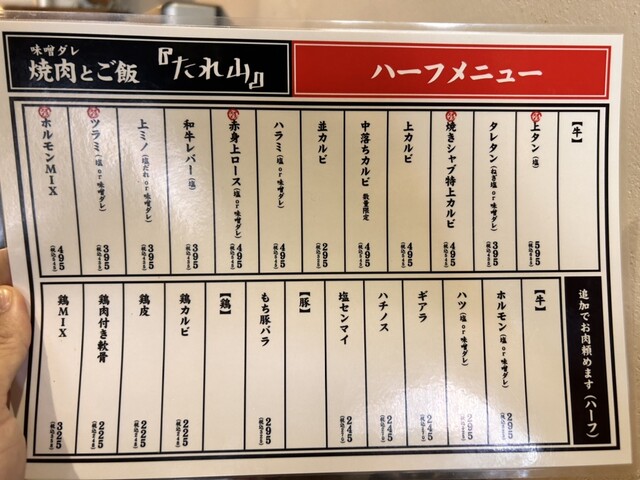 味噌ダレ
焼肉とご飯『たれ山』
ハーフメニュー
【牛】
上タン(塩) 595
タレタン(ねぎ塩or味噌ダレ) 395
焼きシャブ特上カルビ 495
上カルビ 495
中落ちカルビ 数量限定 495
並カルビ 295
ハラミ(塩or味噌ダレ) 495
赤身上ロース(塩or味噌ダレ) 495
和牛レバー(塩) 395
上ミノ(塩だれor味噌ダレ) 395
ツラミ(塩or味噌ダレ) 395
ホルモンMIX 495
追加でお肉頼めます(ハーフ)
【牛】
ホルモン(塩or味噌ダレ) 295
ハツ(塩or味噌ダレ) 295
ギアラ 245
ハチノス 245
塩センマイ 245
【豚】
もち豚バラ 295
【鶏】
鶏カルビ 225
鶏皮 225
鶏肉付き軟骨 225
鶏MIX 325